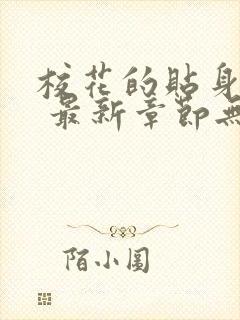 校花的貼身
最新章節無
陌小圓